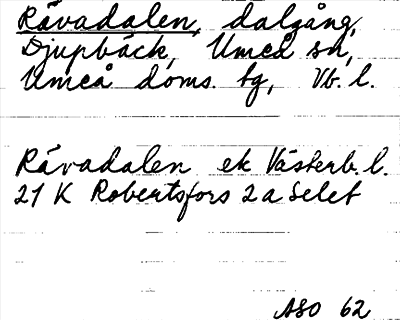 Rävadalen, dalgång,
Djupbäck, Umeå sn,
Umeå doms. tg, Vb. l.
Rävadalen ek Västerb. l.
21 K Robertsfors 2 a Selet
ASO 62